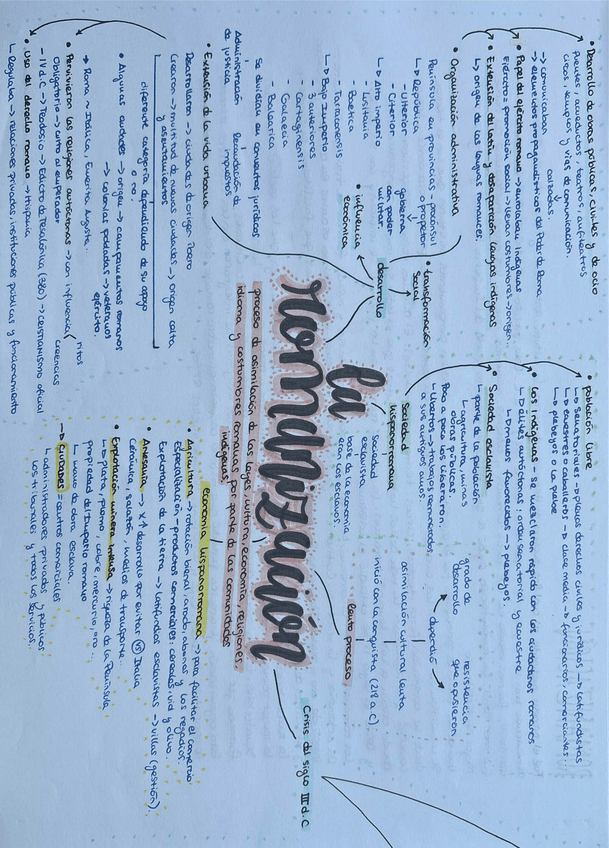 la
romanización
proceso de asimilación de las leyes, cultura, economía, religiones
idioma y costumbres romanas por parte de las comunidades
indígenas.
desarrollo
• transformación
social
• influencia
económica
• Desarrollo de obras públicas, civiles y de ocio
puentes, acueductos, teatros, anfiteatros
circos, templos y vías de comunicación.
→ comunicaban ciudades.
→ elementos propagandísticos del Poder de Roma
• Papel del ejército romano → enrolaban indígenas
Ejército = promoción social → llevan costumbres → origen.
• Extensión del latín y desaparición lenguas indígenas
↳ origen de las lenguas romances.
• Organización administrativa
Península en provincias
procónsul
o propretor
gobierna
con poder
militar.
↳ República
- Ulterior
- Citerior
↳ Alto Imperio
- Lusitania
- Baética
- Tarraconensis
↳ Bajo Imperio
- 3 anteriores
- Cartaginensis
- Galaecia
- Balearica
Se dividían en conventos jurídicos
Administración de justicia
Recaudación de impuestos
• Extensión de la vida urbana
Desarrollaron → ciudades de origen íbero
Crearon → multitud de nuevas ciudades → origen celta
y asentamientos
diferente categoría dependiendo de su apoyo
o no.
• Algunas ciudades → origen → campamentos romanos
→ colonias pobladas → veteranos
ejército.
→ Roma ~ Itálica, Emerita Augusta...
• Pervivieron las religiones autóctonas → con influencia
ritos
creencias
Obligatorio → culto al emperador
- IV d.C → Teodosio → Edicto de Tesalónica (380) → cristianismo oficial
• Uso del derecho romano → Hispania
↳ Regulaba → relaciones privadas, instituciones públicas y funcionamiento
Sociedad
hispanorromana
sociedad
esclavista.
base de la economía
eran los esclavos.
• población libre
↳ senatoriales → plenos derechos civiles y jurídicos → latifundistas
↳ ecuestres o caballeros → clase media → funcionarios, comerciantes..
↳ plebeyos o la plebe
• Los indígenas se mezclaron rápido con los ciudadanos romanos
↳ élites autóctonas: orden senatorial y ecuestre
↳ menos favorecidos → plebeyos.
• Sociedad esclavista
↳ parte de la población
↳ agricultura, minas
obras públicas.
Poco a poco los liberaron.
↳ libertos → trabajos remunerados
a sus antiguos amos.
lento proceso
inició con la conquista (218 a C),
asimilación cultural lenta
dependió
grado de
desarrollo
resistencia
que opusieron
Crisis del siglo III d.C
economía hispanorromana → para facilitar el comercio
• Agricultura → rotación bienal, arado, abonos y los regadíos.
Especialización - productos comerciales: cereales, vid y olivo.
Explotación de la tierra → latifundios esclavistas → villas (gestión).
• Artesanía → X↑ desarrollo por evitar vs Italia
Cerámica, salazón, astilleros de transporte...
• Explotación minera intensa → riqueza de la Península
↳ plata, plomo, cobre, mercurio, oro...
propiedad del Imperio romano
↳ mano de obra esclava.
→ CIUDADES - centros comerciales
↳ administradores privados y públicos
los tribunales y todos los servicios.